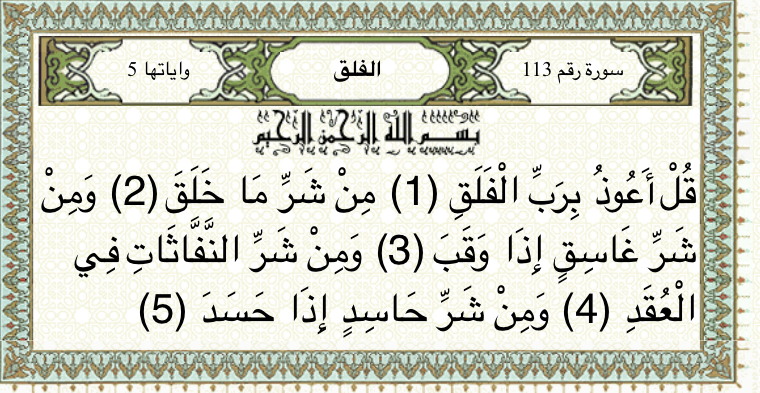 سورة رقم 113 الفلق واياتها 5
بسم الله الرحمن الرحيم
قُلْ أَعُوذُ بِرَبِّ الْفَلَقِ (1) مِنْ شَرِّ مَا خَلَقَ (2) وَمِنْ
شَرِّ غَاسِقٍ إِذَا وَقَبَ (3) وَمِنْ شَرِّ النَّفَّاثَاتِ فِي
الْعُقَدِ (4) وَمِنْ شَرِّ حَاسِدٍ إِذَا حَسَدَ (5)